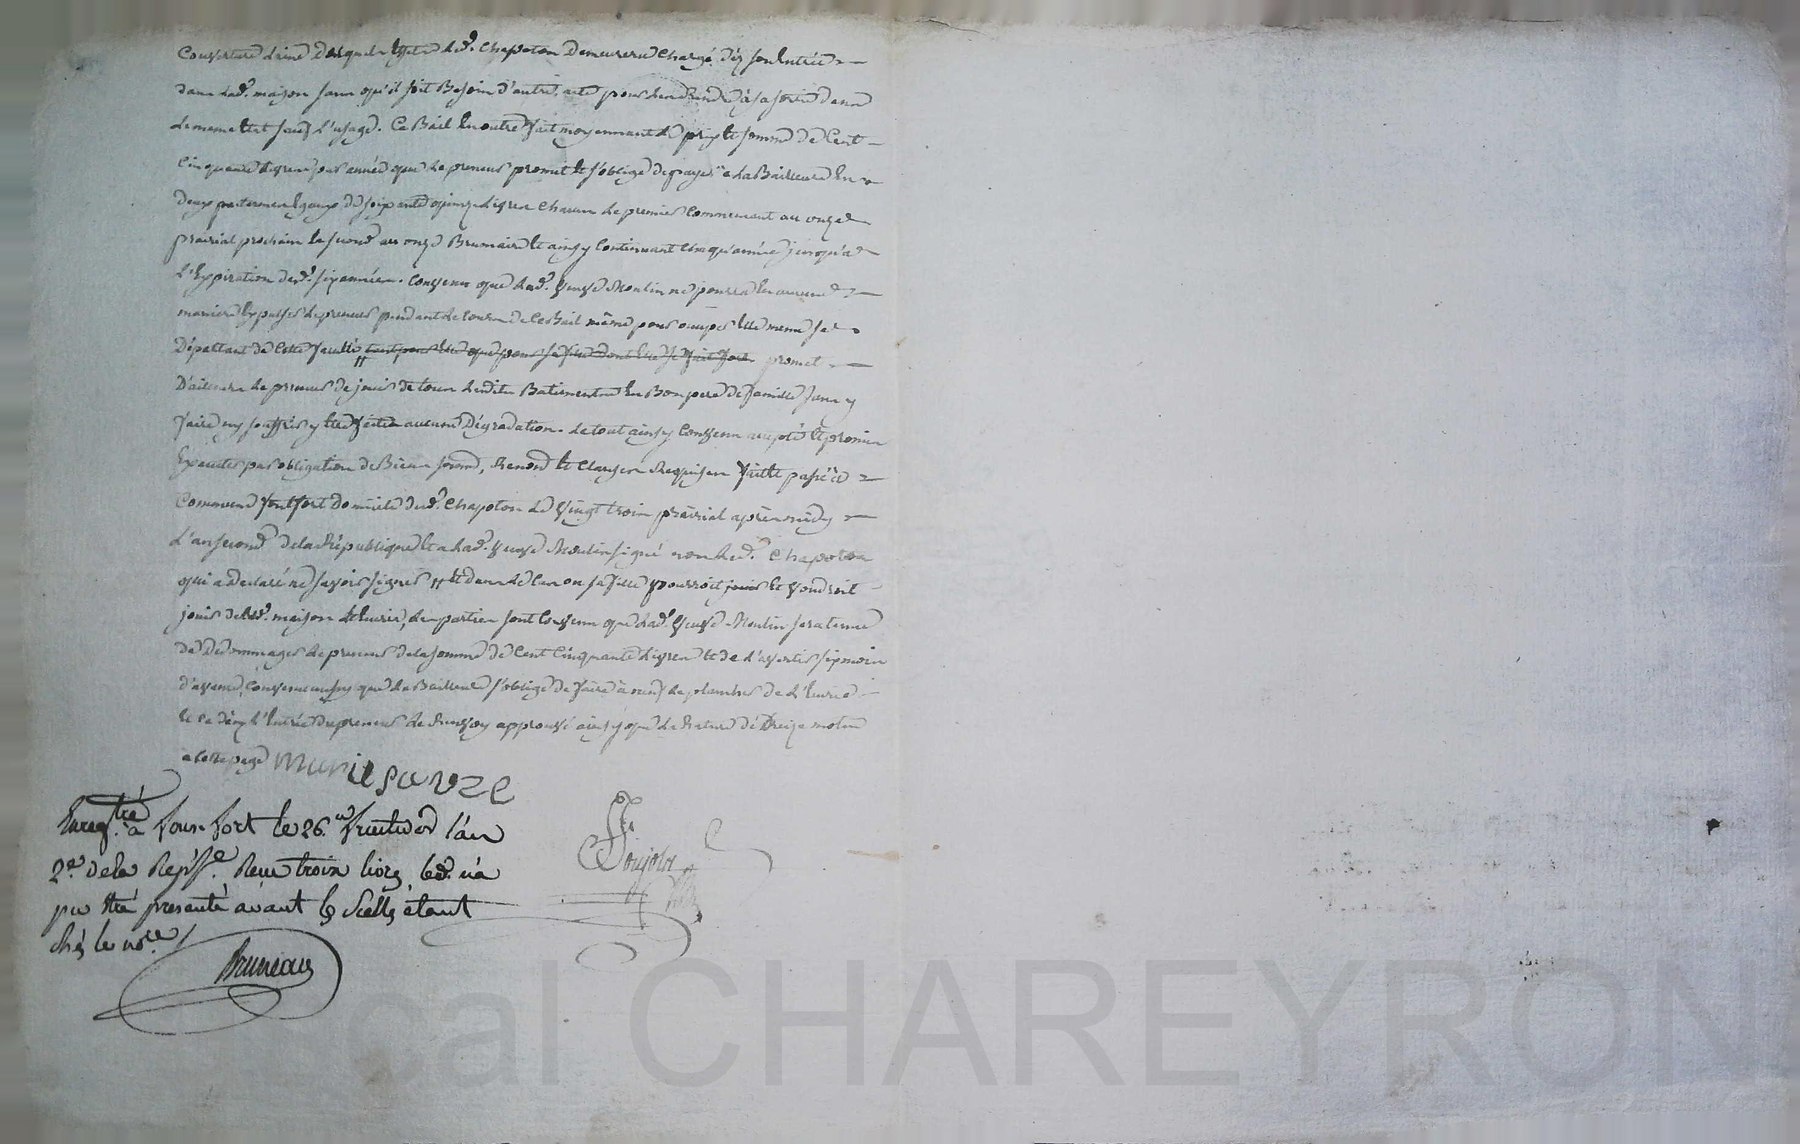 Couverture Laine Desquels effets led. Chapoton Demeurera Chargé Dès son entrée
dans lad. maison sans qu'il soit Besoin d'autre acte pour les rendre à sa sortie dans
le meme etat sauf l'usage. Ce Bail En outre fait moyennant le prix et somme de Cent
Cinquante livres par année que le preneur promet et s'oblige de payer a la Bailleuse En
Deux payements Egaux de soixante quinze livres Chacun le premier Commencant au onze
prairial prochain le second au onze Brumaire et ainsy Continuant Chaqu'année jusqu'a
l'Expiration desd. six années. Convenu que lad. veuve Moulin ne pourra En aucune
maniere Expulser le preneur pendant le cours de ce Bail même pour occuper Elle meme se
Départant de Cette faculté tant pour Elle que pour sa fille dont Elle se fait fort promet
D'ailleurs le preneur de jouir de tous lesdits Batiments En Bon pere de famille sans y
faire ny souffrir y Etre faite aucune Dégradation. Le tout ainsy Convenu accepté et promis
Executer par obligation de Biens soumis, Renond et Clauses Requises fait et passé a
Commune fontfort Domicile dud. Chapoton le vingt trois prairial après midy
L'an second de la République et a lad. veuve Moulin signé non led. Chapoton
qui a Declaré ne savoir signer // et dans le cas ou sa fille pourroit jouir et voudroit
jouir de lad. maison et Ecurie, les parties sont Convenu que lad. veuve Moulin sera tenue
De Dedommager le preneur de la somme de Cent Cinquante livres et de l'avertir six mois
d'avance, Convenu aussy que la Bailleuse s'oblige de faire à neuf le plancher de l'Ecurie
et ce dès l'Entrée du preneur le Renvoy approuvé ainsy que la Rature de treize mots
a cette page marie sauze
Enregtré à fons-fort le 26. fructidor l'an
2.e de la Repq.e Reçu trois livres led. n'a
pu etre presenté avant le scellé étant
chés le no.re
Bruneau
Poujol
No.re
cal CHAREYRON